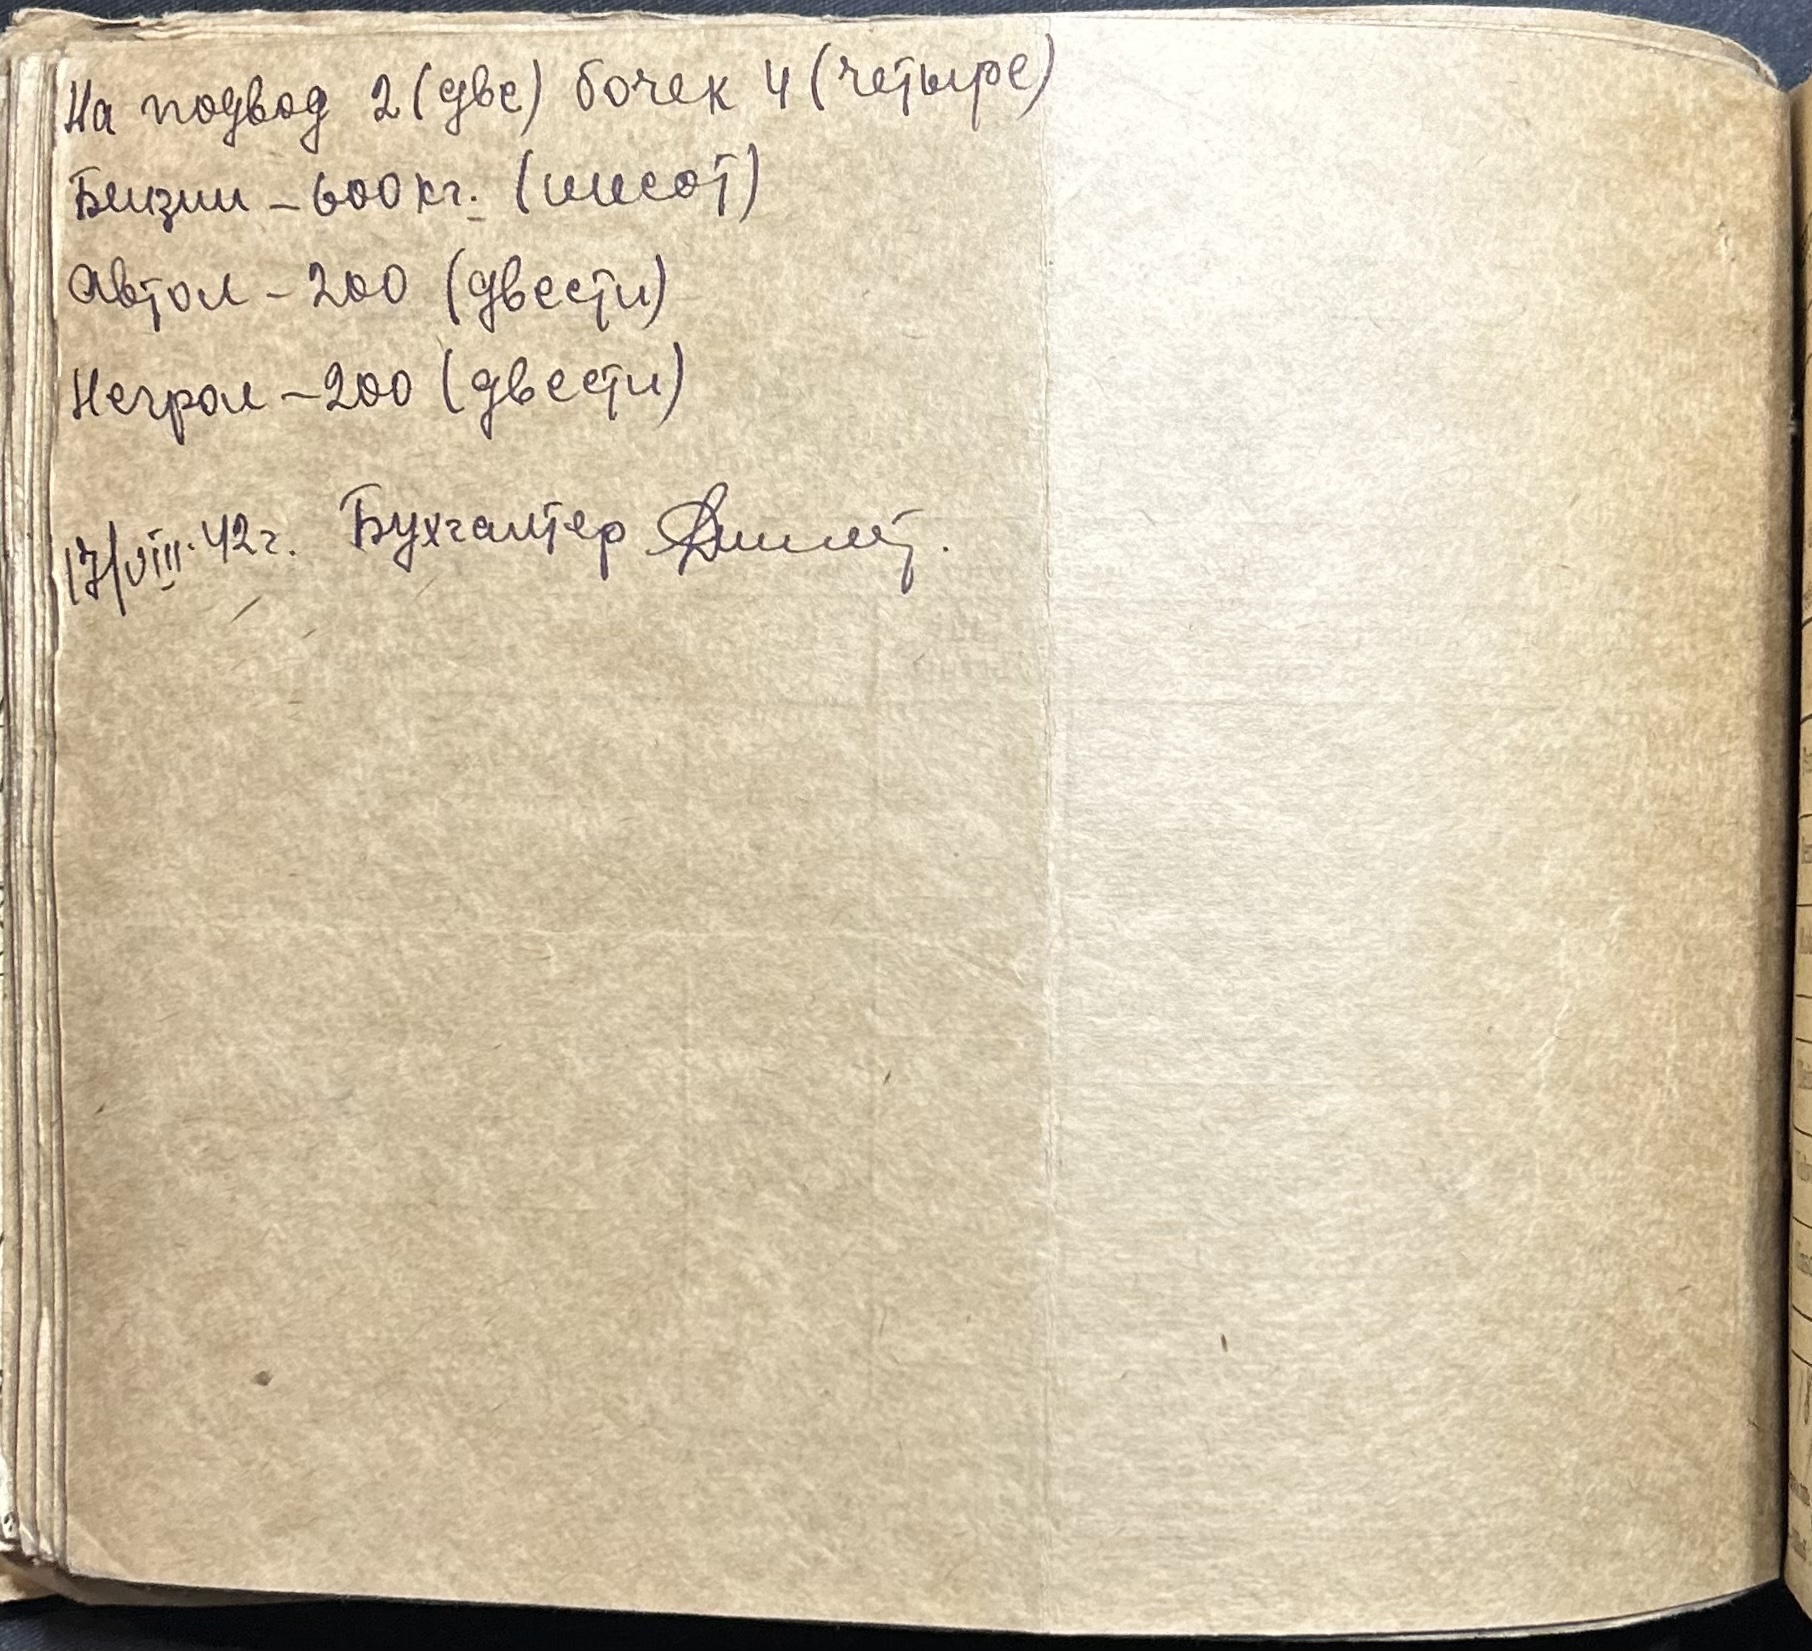 На подвод 2 (две) бочек 4 (четыре)
Бензин - 600 кг. (шисот)
Автол - 200 (двести)
Негрол - 200 (двести)
17/VIII-42 г. Бухгалтер